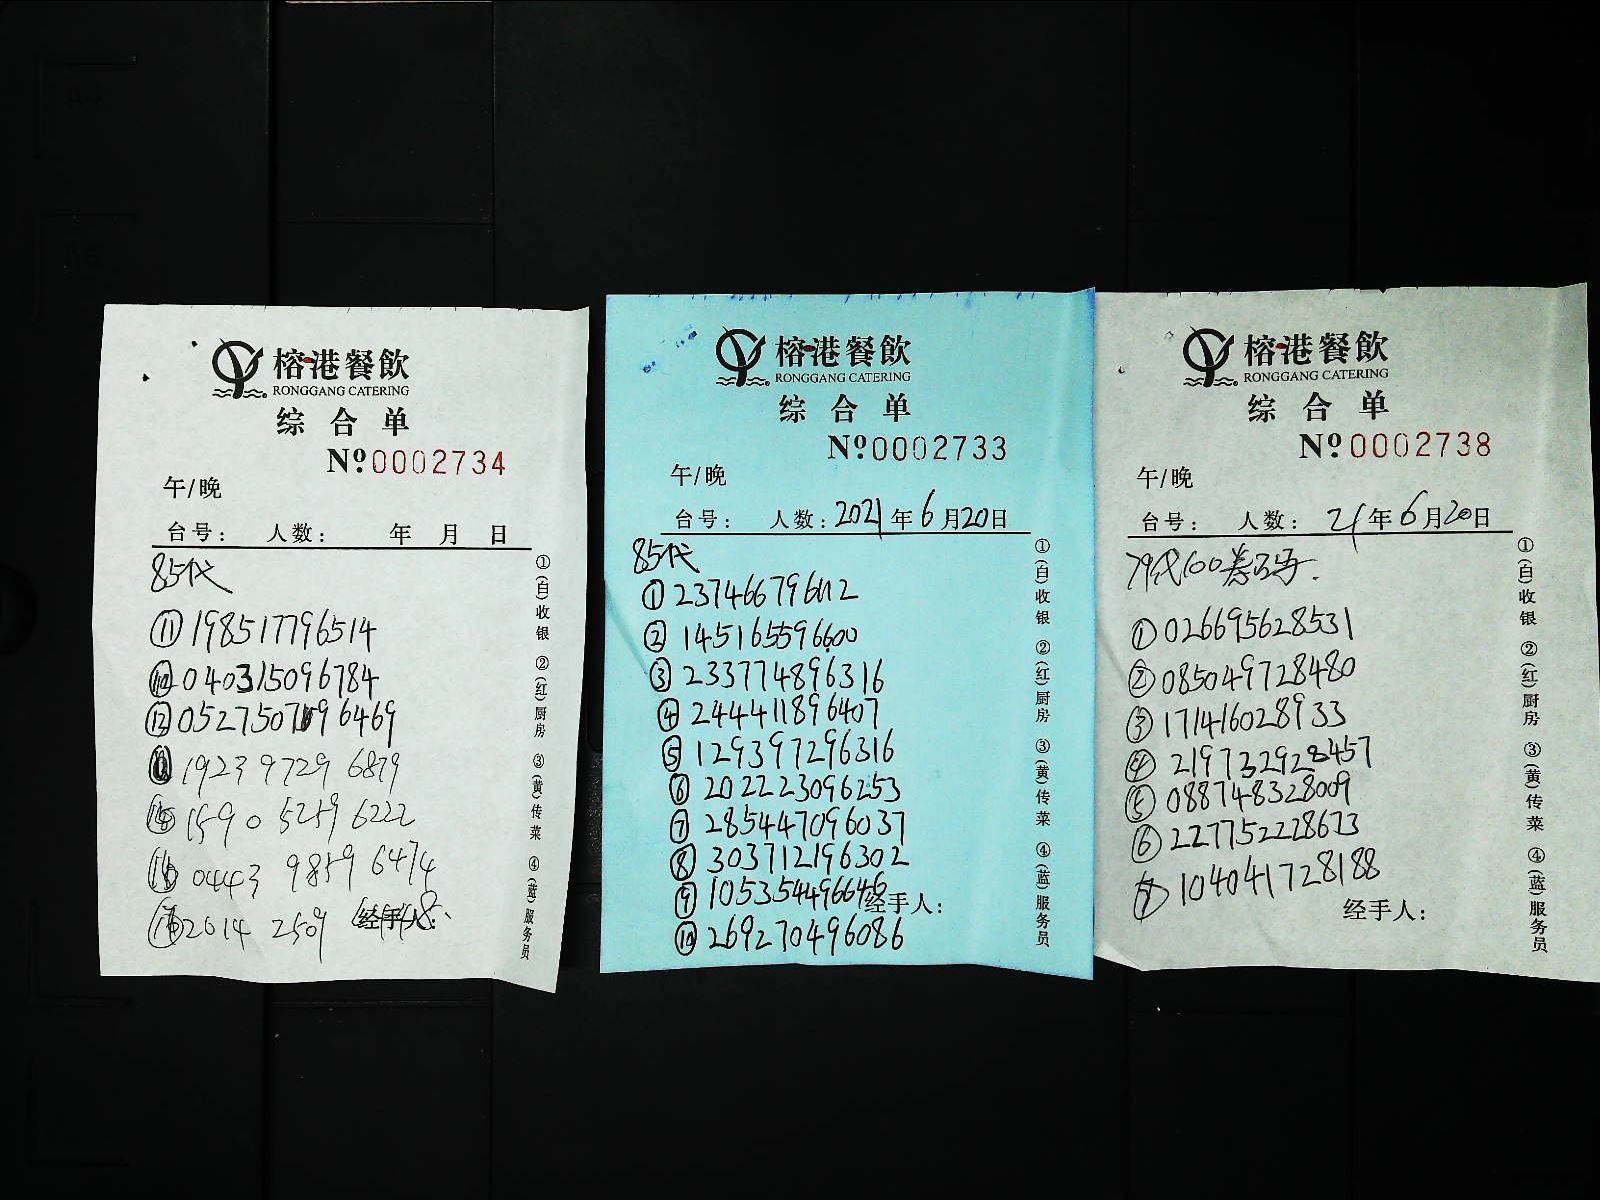 榕港餐飲
RONGGANG CATERING
综合单
Nº0002734
午/晚
台号： 人数： 年 月 日
85代
⑪198517796514
040315095784
⑫0527507596469
1923 9729 6879
1590 5259 6222
0443 9859 6474
2014 2509
经手人：
①(自)收银 ②(红)厨房 ③(黄)传菜 ④(蓝)服务员
榕港餐飲
RONGGANG CATERING
综合单
Nº0002733
午/晚
台号： 人数：2021年6月20日
85代
①237466796112
②145165596600
③233774896316
④244411896407
⑤129397296316
⑥202223096253
⑦285447096037
⑧303712196302
⑨105354496646
经手人：
⑩269270496086
①(自)收银 ②(红)厨房 ③(黄)传菜 ④(蓝)服务员
榕港餐飲
RONGGANG CATERING
综合单
Nº0002738
午/晚
台号： 人数： 21年6月20日
79代100券码
①026695628531
②085049728480
③171416028933
④219732928457
⑤088748328009
⑥227752228673
⑦104041728188
经手人：
①(自)收银 ②(红)厨房 ③(黄)传菜 ④(蓝)服务员